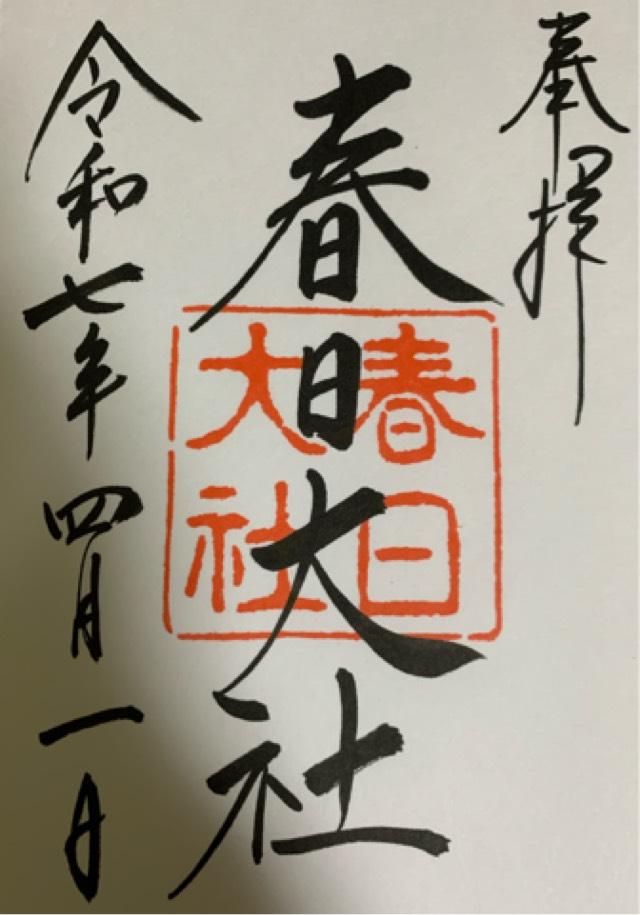 奉拝
春日大社
春日
大社
令和七年四月一日